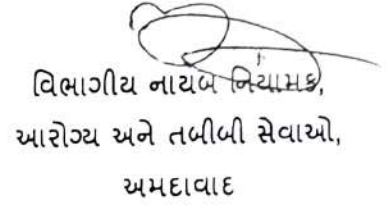 વિભાગીય નાયબ નિયામક,
આરોગ્ય અને તબીબી સેવાઓ,
અમદાવાદ